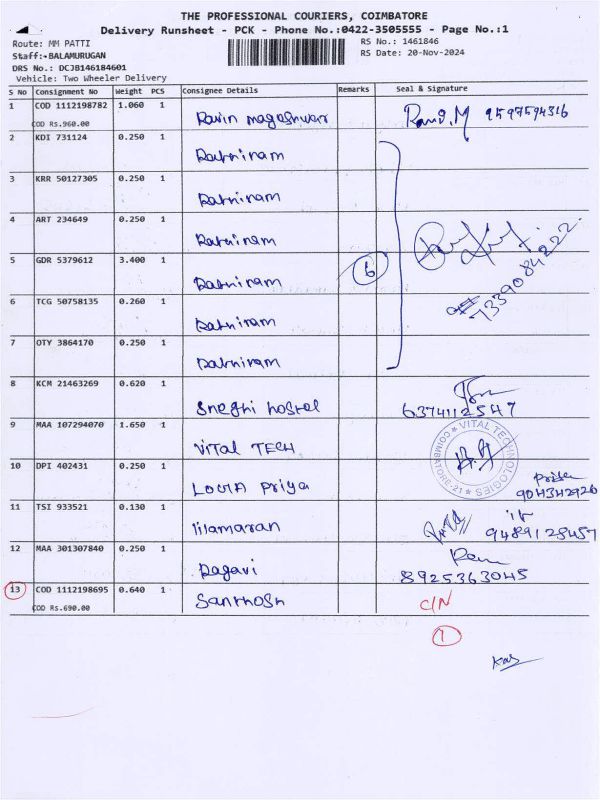 THE PROFESSIONAL COURIERS, COIMBATORE
Delivery Runsheet - PCK - Phone No.:0422-3505555 - Page No.:1
Route: MM PATTI
RS No.: 1461846
Staff:-BALAMURUGAN
RS Date: 20-Nov-2024
DRS No.: DCJB146184601
Vehicle: Two Wheeler Delivery
S No Consignment No Weight PCS Consignee Details Remarks Seal & Signature
1 COD 1112198782 1.060 1 9597594316
COD Rs.960.00
2 KDI 731124 0.250 1 Ratniram
3 KRR 50127305 0.250 1 Ratniram
4 ART 234649 0.250 1 Ratniram
5 GDR 5379612 3.400 1 Ratniram 6 7339084222
6 TCG 50758135 0.260 1 Ratniram
7 OTY 3864170 0.250 1 Ratniram
8 KCM 21463269 0.620 1 Sneghi hostel 6374112547
9 MAA 107294070 1.650 1 VITAL TECH
VITAL TECHNOLOGIES COIMBATORE-21
10 DPI 402431 0.250 1 Priya
11 TSI 933521 0.130 1 Ilamaran 9489128457
12 MAA 301307840 0.250 1 Ragavi 8925363045
13 COD 1112198695 0.640 1 Santhosh C/N
COD Rs.690.00
1